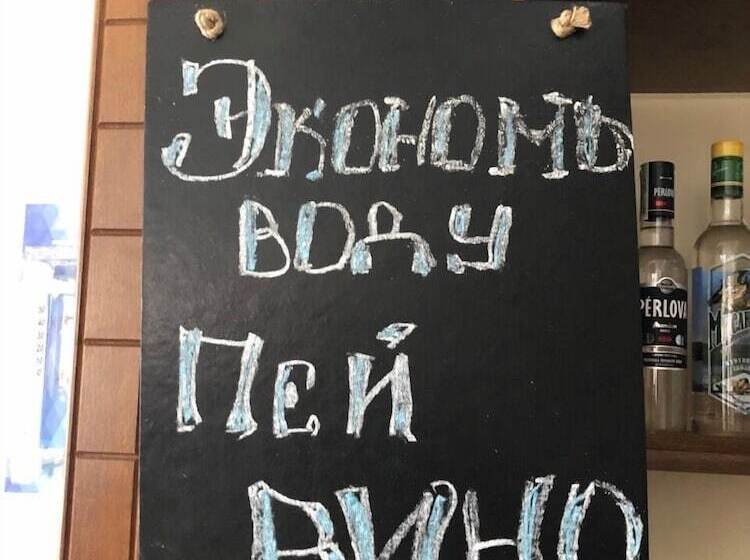 Экономь
воду
Пей
вино
PÉRLOVA
PÉRLOVA